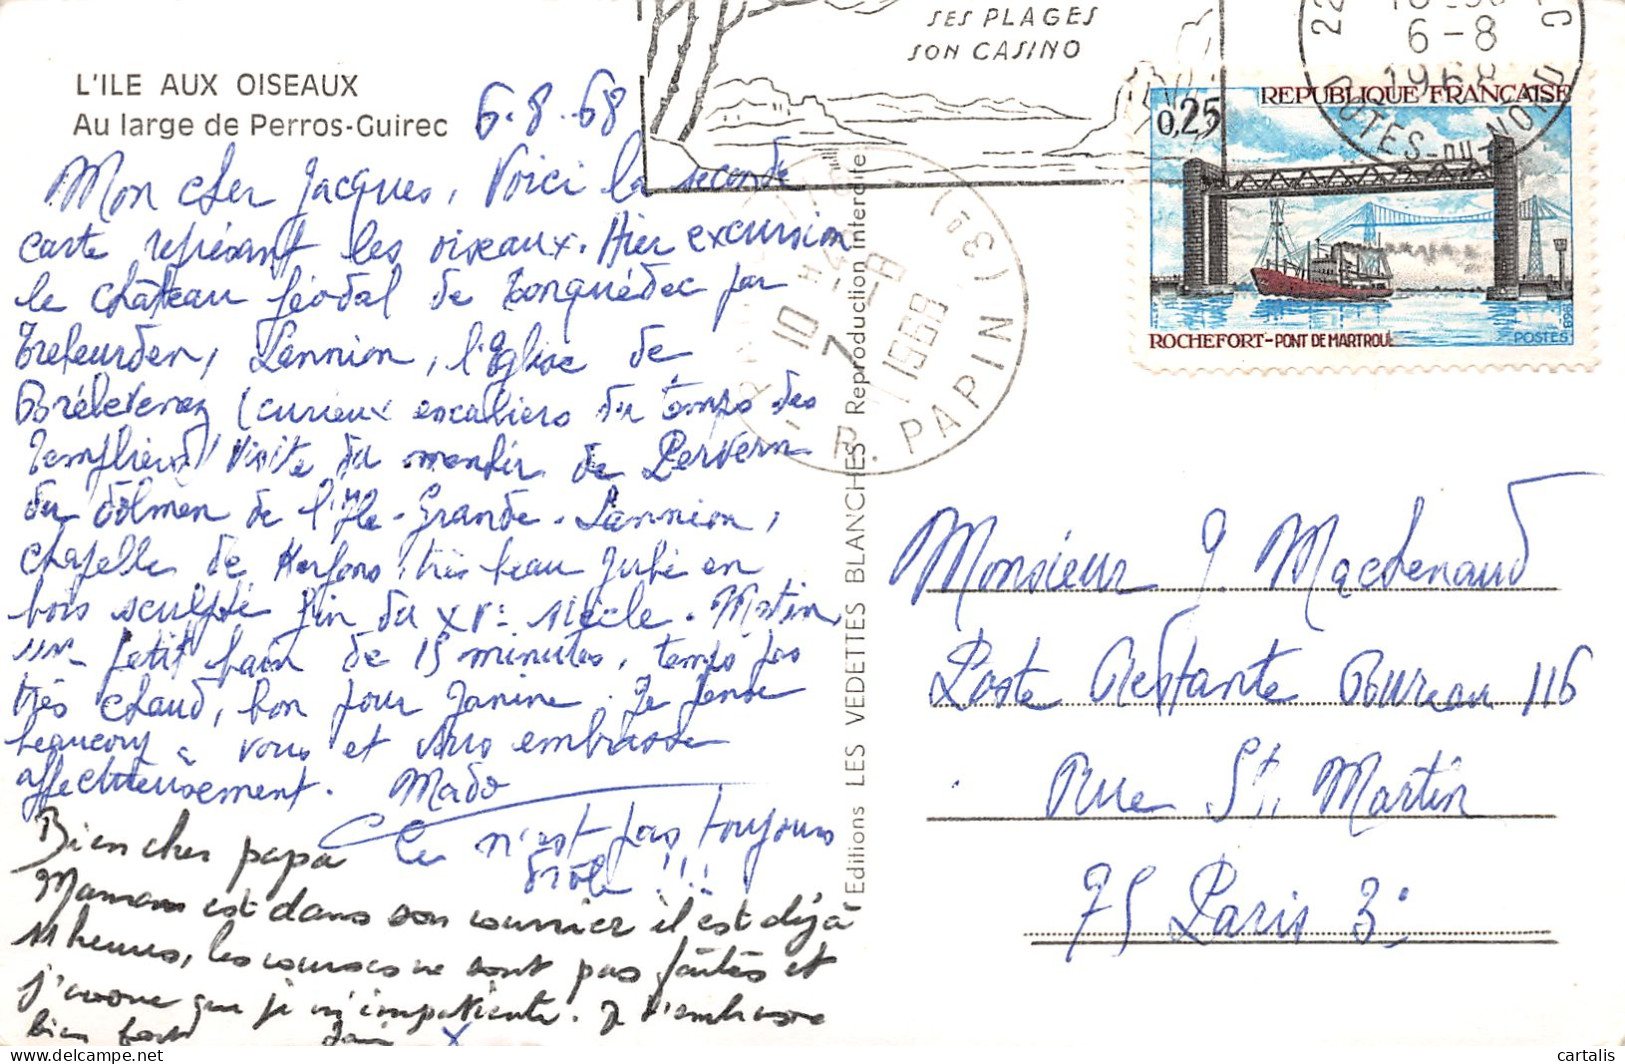 L'ILE AUX OISEAUX
Au large de Perros-Guirec
6.8.68
Mon cher Jacques, Voici la seconde
carte représant les oiseaux. Hier excursion
le château féodal de Tonquédec par
Trebeurden, Lannion, l'Eglise de
Brélévenez (curieux escaliers du temps des
Templiers) Visite du menhir de Pervern
du dolmen de l'Ile-Grande. Lannion,
chapelle de Kerfons, très beau Jubé en
bois sculpté fin du XVe siècle. Matin
petit bain de 15 minutes, temps pas
très chaud, bon pour Janine. Je pense
beaucoup à vous et vous embrasse
affectueusement. Mado
Ce n'est pas toujours
drôle !!!
Bien cher papa
Maman est dans son courrier il est déjà
11 heures, les courses ne sont pas faites et
j'avoue que je m'impatiente. Je t'embrasse
bien fort
Editions LES VEDETTES BLANCHES Reproduction interdite
SES PLAGES
SON CASINO
22
6-8
1968
COTES-DU-NORD
10H
7-8
1968
R. PAPIN (3e)
0,25
REPUBLIQUE FRANÇAISE
ROCHEFORT-PONT DE MARTROU
POSTES
1968
Monsieur J. Machenaud
Poste Restante Bureau 116
Rue St. Martin
75 Paris 3e
cartalis